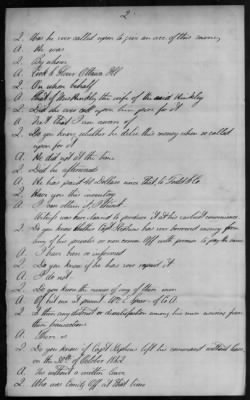 2
Q. Was he ever called upon to give an acc. of this money
A. He was
Q. By whom
A. Cook & Glover Ottawa Ill
Q. On whose behalf
A. That of Mrs Hinkley, the wife of the said Hinkley
Q. Did she ever call upon him for it
A. Not that I am aware of
Q. Do you know whether he had this money when so called
upon for it
A. He did not at the time
Q. Did he afterwards
A. He has paid 60 Dollars since that, to Todd & Co.
Q. Have you this inventory
A. I can obtain it, I think
Witness was here desired to produce it at his earliest convenience
Q. Do you know whether Capt Hopkins has ever borrowed money from
any of his privates or non com. off. with promise to pay the same
A. I have been so informed
Q. Do you know if he has ever repaid it
A. I do not
Q. Do you know the names of any of them men
A. Of but one at present, Wm
Q. Is there any distrust or dissatisfaction among his men arising from
these transactions
A. There is
Q. Do you know if Capt Hopkins left his command without leave
on the 30th of October 1862
A. Yes without a written leave
Q. Who was County Off. at that time